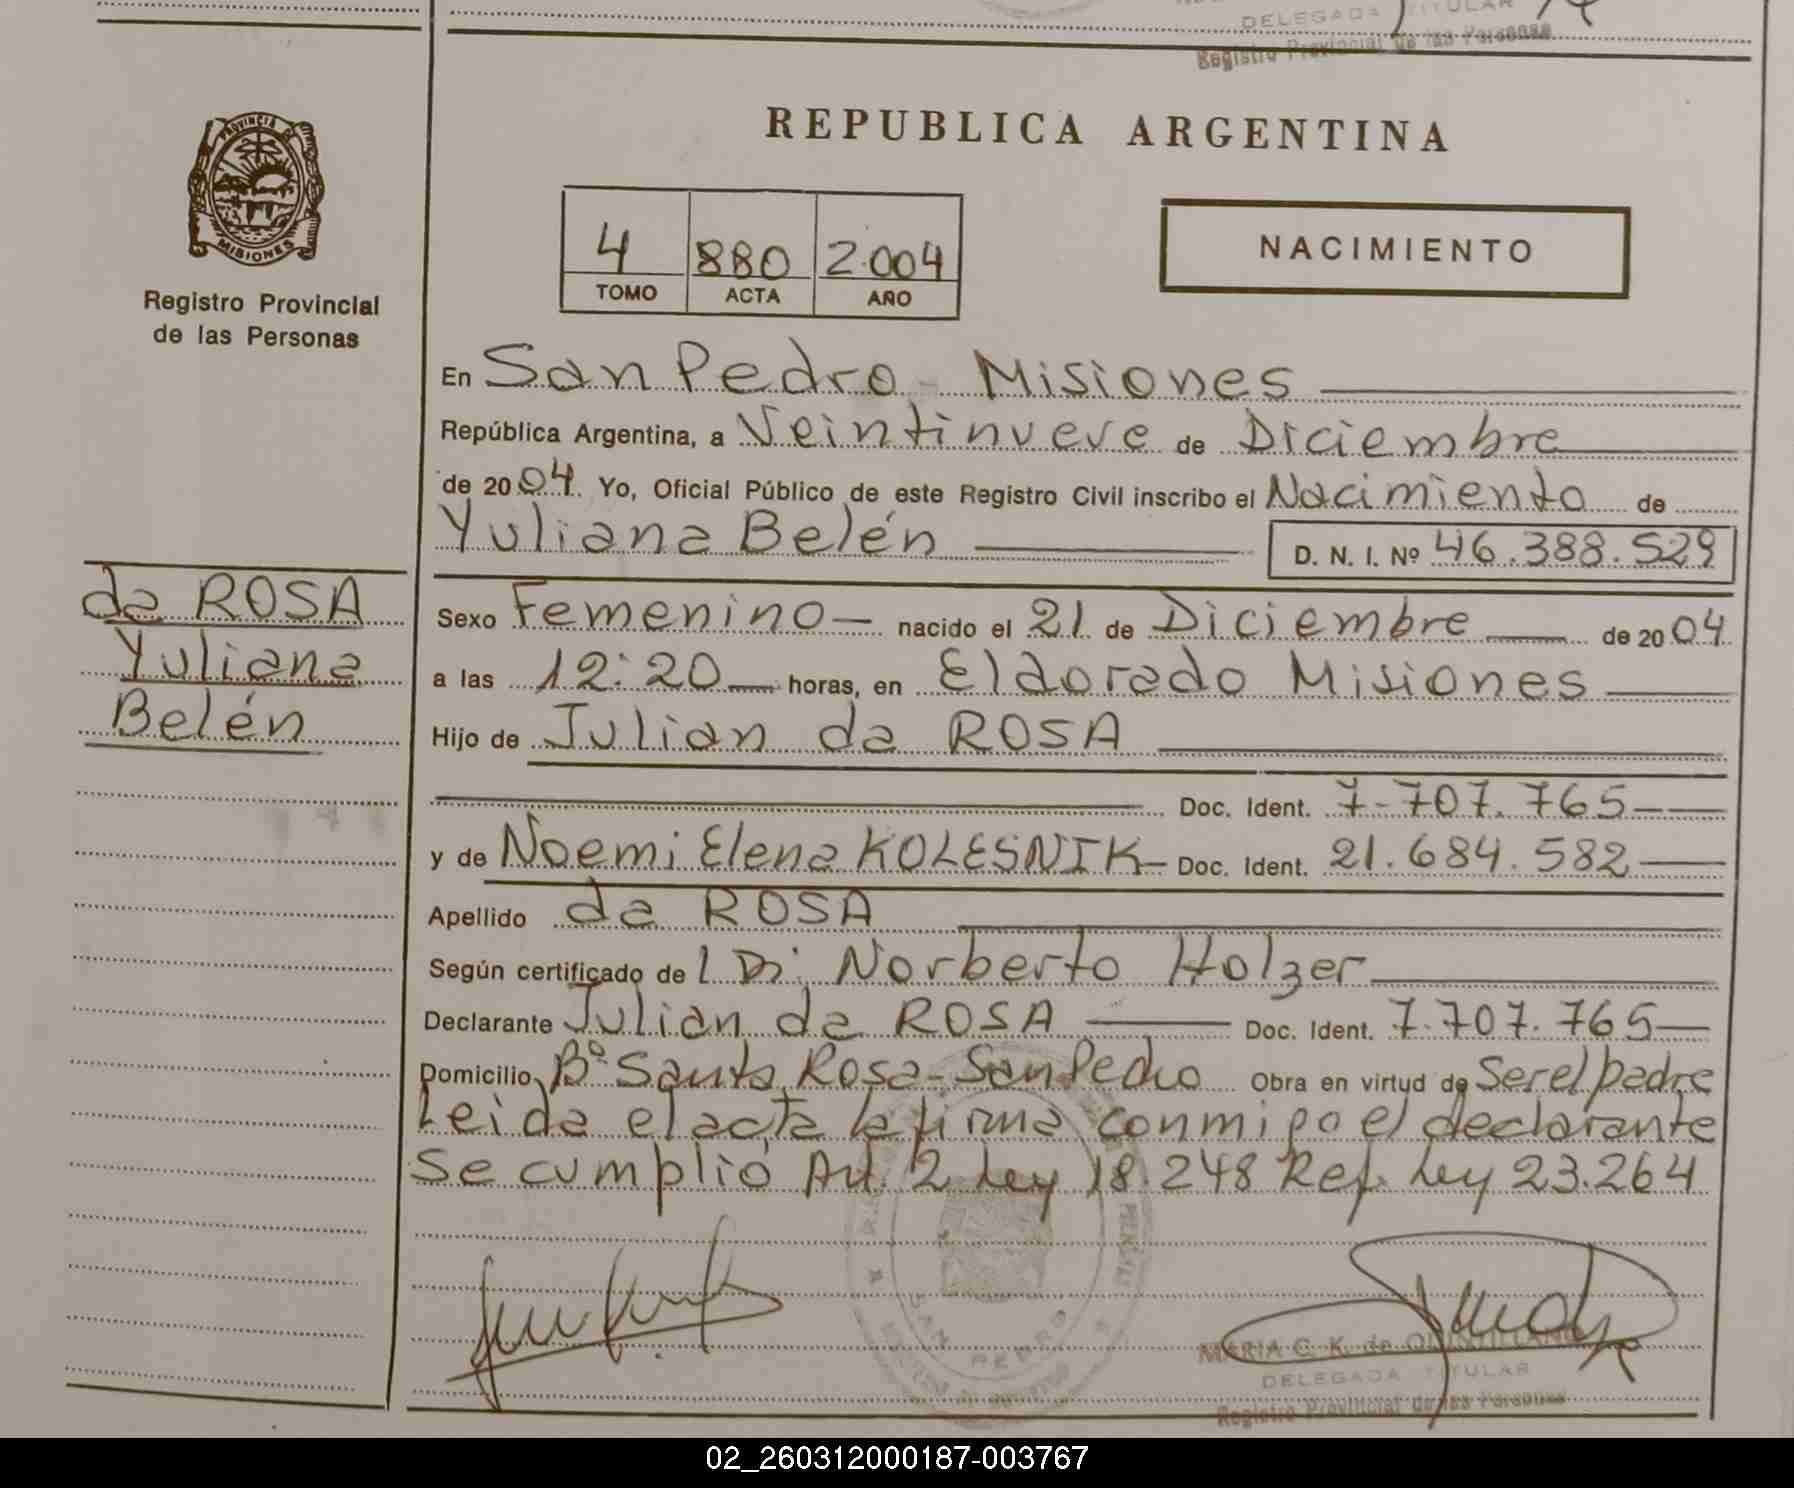 DELEGADA TITULAR
Registro Provincial de las Personas
PROVINCIA DE
MISIONES
Registro Provincial
de las Personas
REPUBLICA ARGENTINA
4 880 2.004
TOMO ACTA AÑO
NACIMIENTO
En San Pedro - Misiones
República Argentina, a Veintinueve de Diciembre
de 2004. Yo, Oficial Público de este Registro Civil inscribo el Nacimiento de
Yuliana Belén D. N. I. Nº 46.388.529
da ROSA
Yuliana
Belén
Sexo Femenino nacido el 21 de Diciembre de 2004
a las 12:20 horas, en Eldorado Misiones
Hijo de Julian da ROSA
Doc. Ident. 7.707.765
y de Noemi Elena KOLESNIK Doc. Ident. 21.684.582
Apellido da ROSA
Según certificado de l Dr. Norberto Holzer
Declarante Julian da ROSA Doc. Ident. 7.707.765
Domicilio Bº Santa Rosa - San Pedro Obra en virtud de Ser el padre
Leida el acta la firma conmigo el declarante
Se cumplió Art. 2 Ley 18.248 Ref. Ley 23.264
SAN PEDRO
MARIA C. K. de QUINTILLANO
DELEGADA TITULAR
Registro Provincial de las Personas
02_260312000187-003767